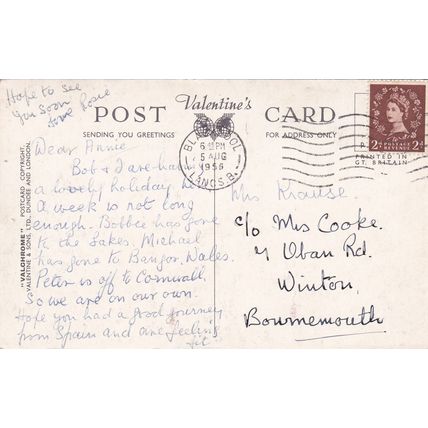 Hope to see
you soon
love Rosie
POST Valentine's CARD
SENDING YOU GREETINGS
FOR ADDRESS ONLY
"VALCHROME" POSTCARD COPYRIGHT,
VALENTINE & SONS, LTD., DUNDEE AND LONDON.
6. PM
5 AUG
1956
LANCS. B.
2D POSTAGE REVENUE 2D
PRINTED IN
GT. BRITAIN
Dear Annie
Bob & I are having
a lovely holiday here
A week is not long
enough. Bobbie has gone
to the Lakes. Michael
has gone to Bangor, Wales.
Peter is off to Cornwall.
So we are on our own.
Hope you had a good journey
from Spain and are feeling
fit
Mrs Krause.
c/o Mrs Cooke.
Oban Rd.
Winton,
Bournemouth